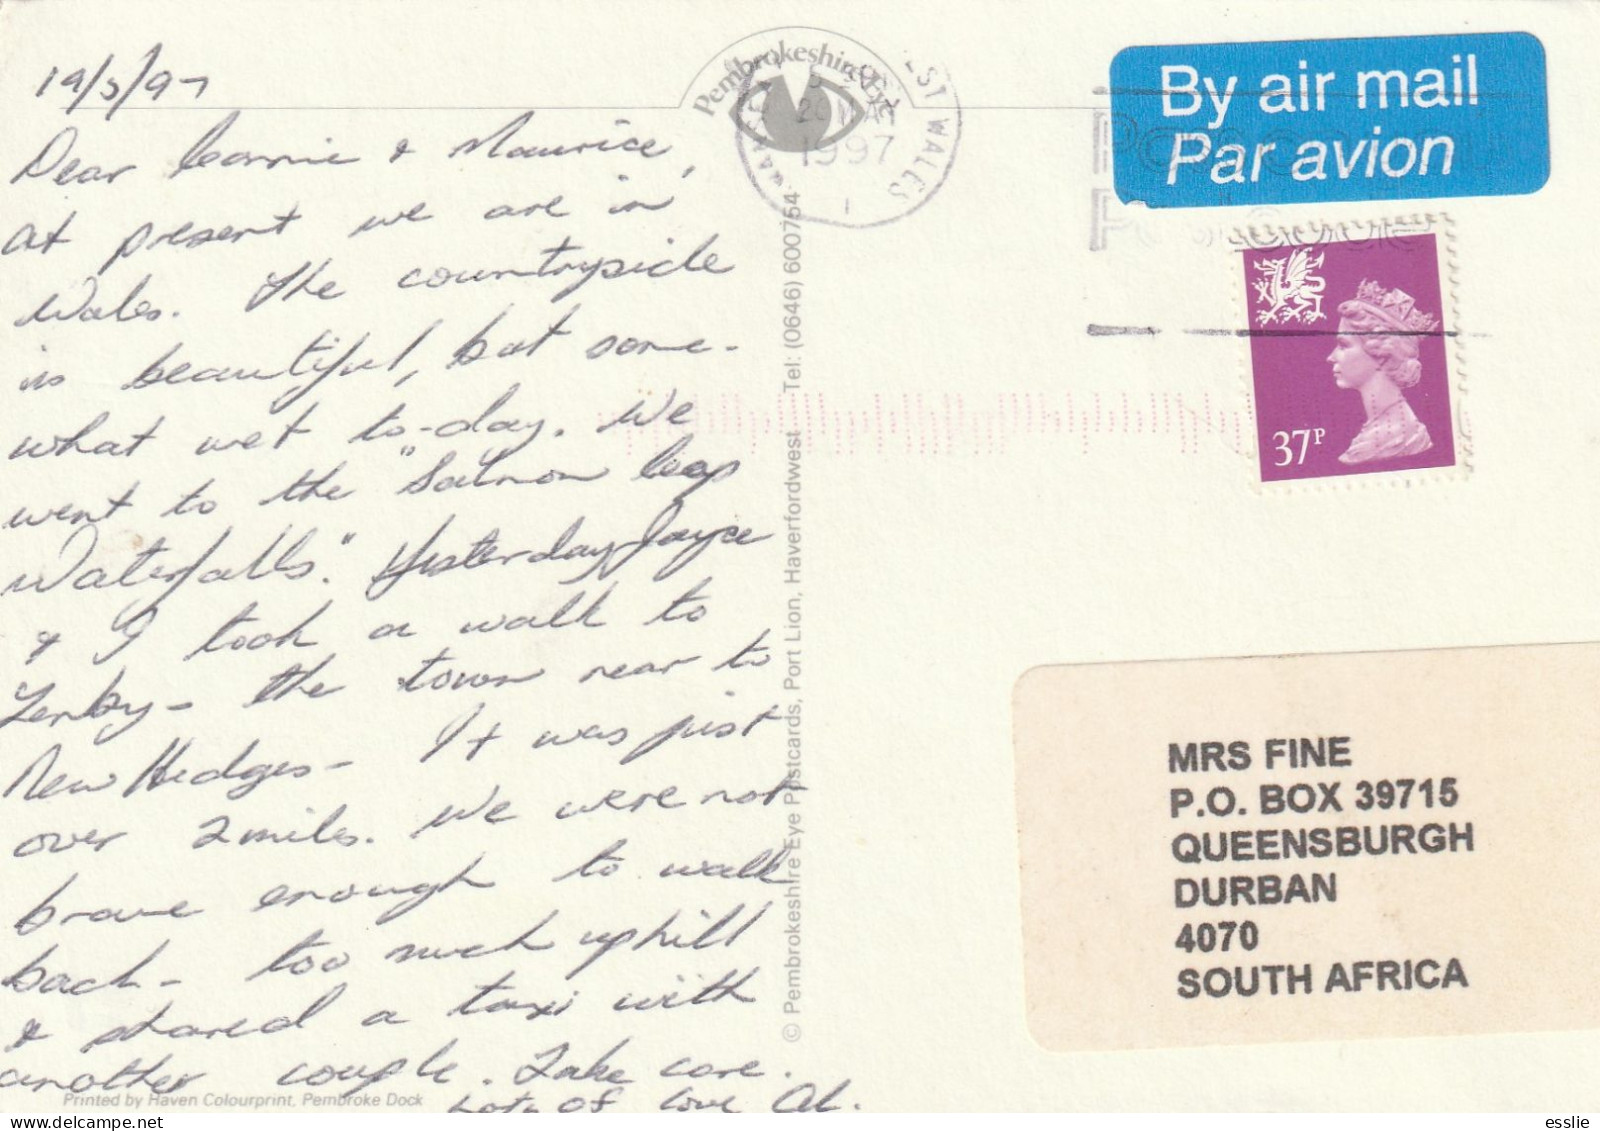 19/5/97
Dear Connie & Maurice,
at present we are in
Wales. The countryside
is beautiful, but some-
what wet to-day. We
went to the "Salmon leap
Waterfalls." Yesterday Joyce
& I took a walk to
Tenby - the town near to
New Hedges - It was just
over 2 miles. We were not
brave enough to walk
back - too much uphill
& shared a taxi with
another couple. Take care.
Lots of love Al.
Printed by Haven Colourprint, Pembroke Dock
Pembrokeshire Eye
© Pembrokeshire Eye Postcards, Port Lion, Haverfordwest Tel: (0646) 600754
20 MAY
1997
WALES
By air mail
Par avion
37P
MRS FINE
P.O. BOX 39715
QUEENSBURGH
DURBAN
4070
SOUTH AFRICA
esslie